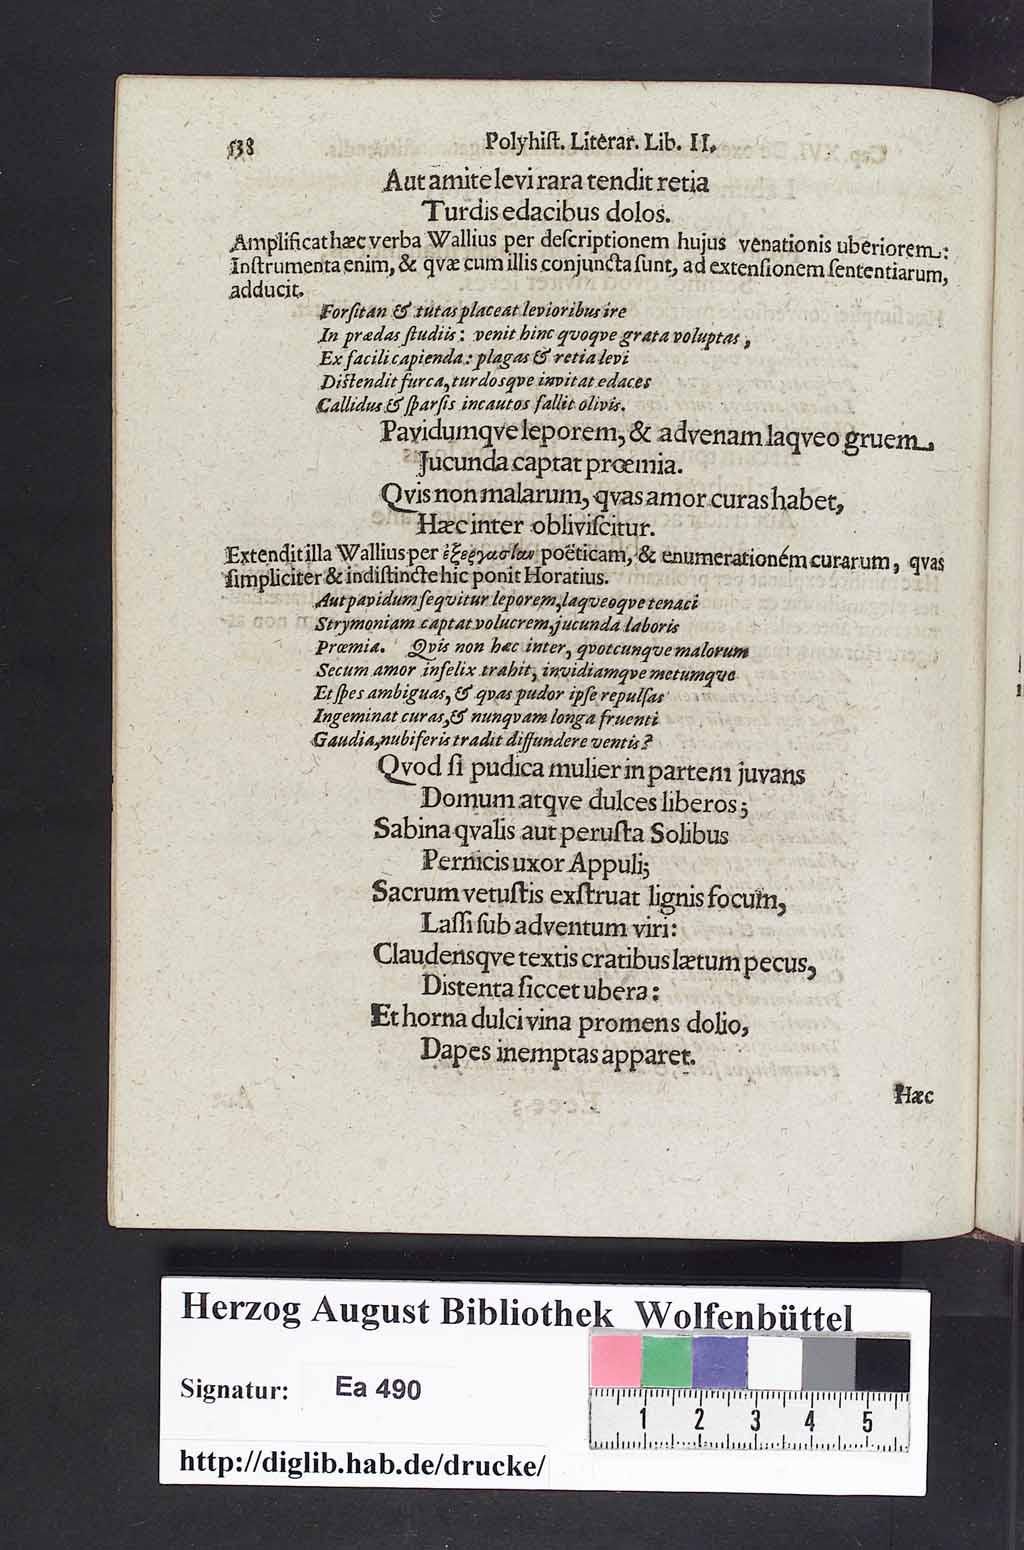 538 Polyhiſt. Literar. Lib. II.
Aut amite levi rara tendit retia
Turdis edacibus dolos.
Amplificat hæc verba Wallius per deſcriptionem hujus venationis uberiorem:
Inſtrumenta enim, & qvæ cum illis conjuncta ſunt, ad extenſionem ſententiarum,
adducit.
Forſitan & tutas placeat levioribus ire
In prædas ſtudiis: venit hinc qvoqve grata voluptas,
Ex facili capienda: plagas & retia levi
Diſtendit furca, turdosqve invitat edaces
Callidus & ſparſis incautos fallit olivis.
Pavidumqve leporem, & advenam laqveo gruem
Jucunda captat prœmia.
Qvis non malarum, qvas amor curas habet,
Hæc inter obliviſcitur.
Extendit illa Wallius per ἐξεργασίαν poëticam, & enumerationém curarum, qvas
ſimpliciter & indiſtincte hic ponit Horatius.
Aut pavidum ſeqvitur leporem, laqveoqve tenaci
Strymoniam captat volucrem, jucunda laboris
Prœmia. Qvis non hæc inter, qvotcunqve malorum
Secum amor infelix trahit, invidiamqve metumqve
Et ſpes ambiguas, & qvas pudor ipſe repulſas
Ingeminat curas, & nunqvam longa fruenti
Gaudia, nubiferis tradit diffundere ventis?
Qvod ſi pudica mulier in partem juvans
Domum atqve dulces liberos;
Sabina qvalis aut peruſta Solibus
Pernicis uxor Appuli;
Sacrum vetuſtis exſtruat lignis focum,
Laſſi ſub adventum viri:
Claudensqve textis cratibus lætum pecus,
Distenta ſiccet ubera:
Et horna dulci vina promens dolio,
Dapes inemptas apparet.
Hæc
Herzog August Bibliothek Wolfenbüttel
Signatur: Ea 490
1 2 3 4 5
http://diglib.hab.de/drucke/